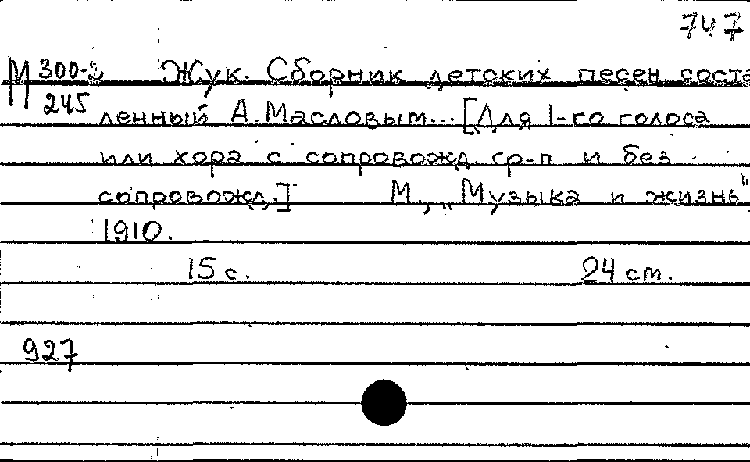 747
М 300-2 Жук. Сборник детских песен соста
245 ленный А. Масловым... [Для 1-го голоса
или хора с сопровожд. ср-п и без
сопровожд.] М., „Музыка и жизнь"
1910.
15 с. 24 см.
927